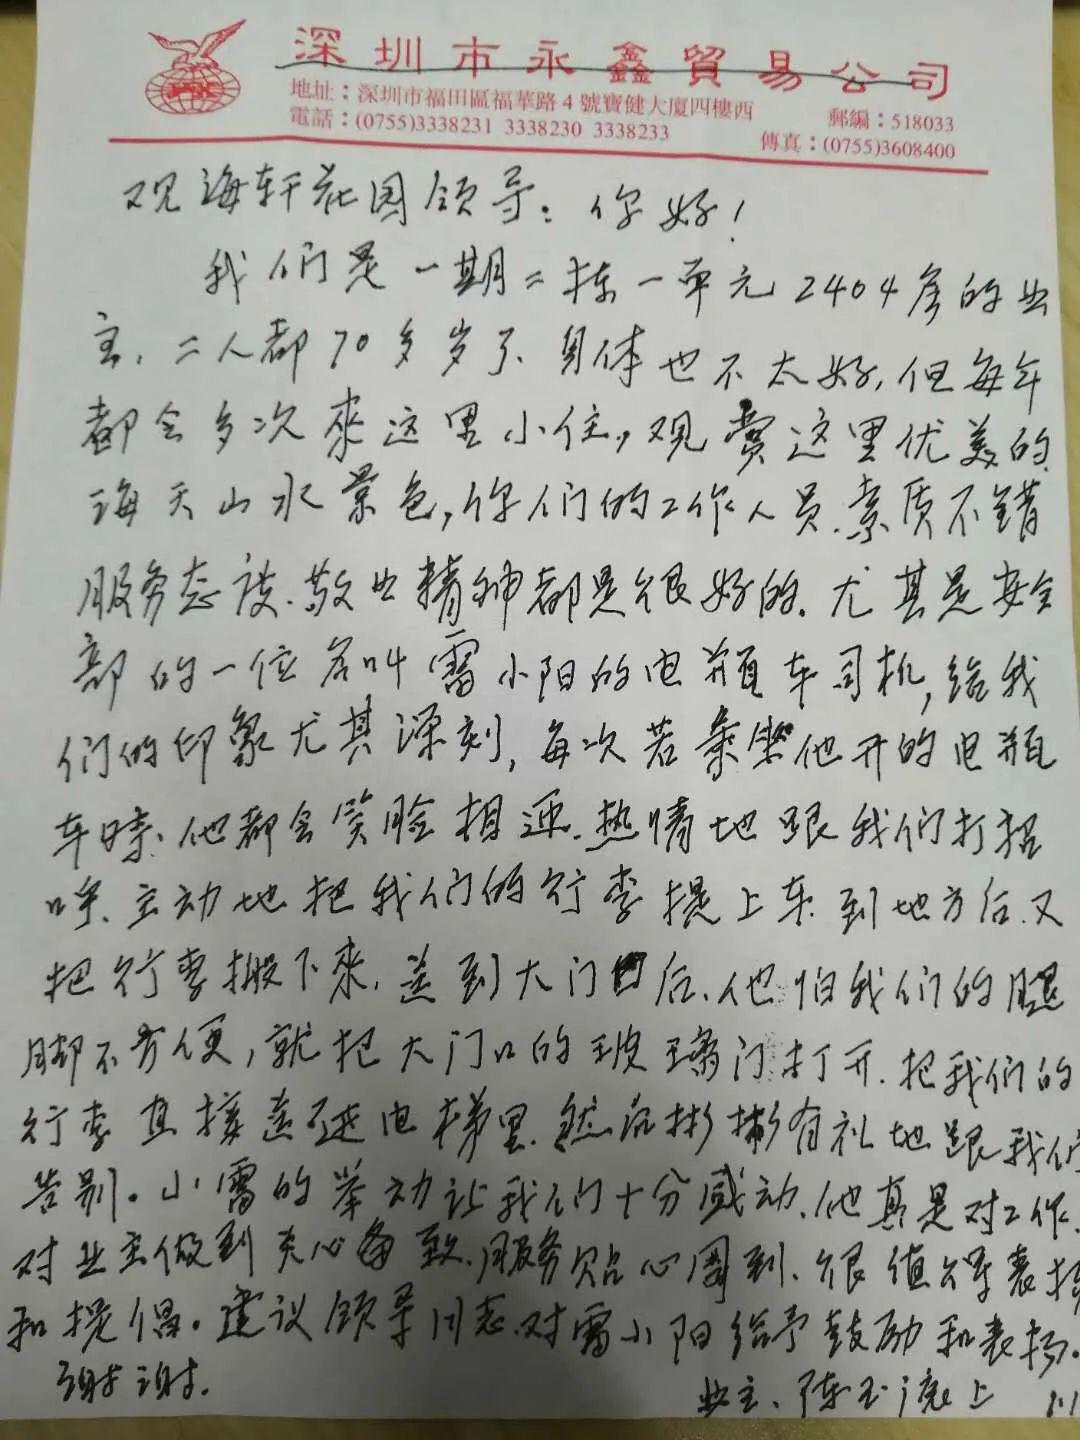 深圳市永鑫貿易公司
地址：深圳市福田區福華路4號寶健大廈四樓西
郵編：518033
電話：(0755)3338231 3338230 3338233
傳真：(0755)3608400
观海轩花园领导：你好！
我们是一期二栋一单元2404房的业
主、二人都70多岁了、身体也不太好,但每年
都会多次來这里小住,观赏这里优美的
海天山水景色,你们的工作人员.素质不错
服务态度.敬业精神都是很好的.尤其是安全
部的一位名叫雷小阳的电瓶车司机,给我
们的印象尤其深刻,每次若乘坐他开的电瓶
车時.他都会笑脸相迎.热情地跟我们打招
呼.主动地把我们的行李提上车.到地方后.又
把行李搬下來.送到大门口后.他怕我们的腿
脚不方便,就把大门口的玻璃门打开.把我们的
行李直接送进电梯里.然后彬彬有礼地跟我们
告别。小雷的举动让我们十分感动.他真是对工作.
对业主做到关心备致.服务贴心周到.很值得表扬
和提倡。建议领导同志对雷小阳给予鼓励和表扬。
谢谢.
业主、陈玉 上